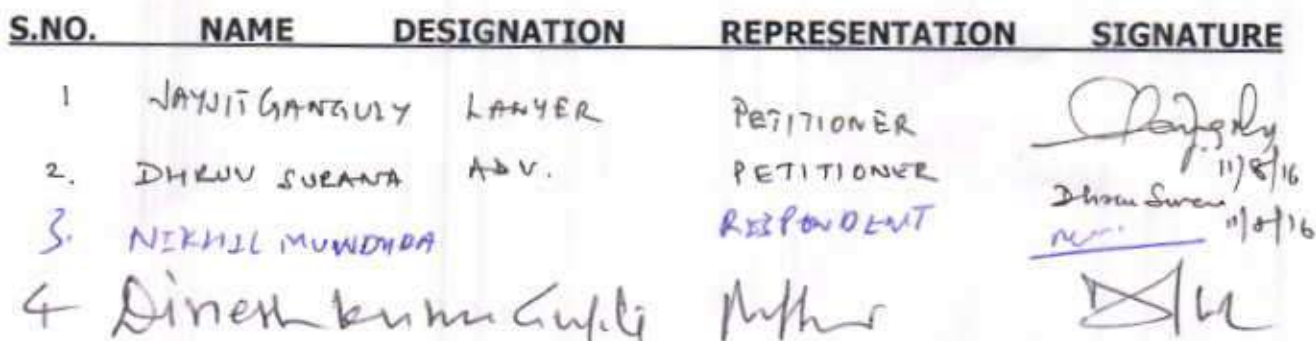 S.NO. NAME DESIGNATION REPRESENTATION SIGNATURE
1 JAYJIT GANGULY LAWYER PETITIONER
11/8/16
2. DHRUV SURANA ADV. PETITIONER Dhruv Surana
11/8/16
3. NIKHIL MUNDHDA RESPONDENT
4 Dinesh Kumar Gupta